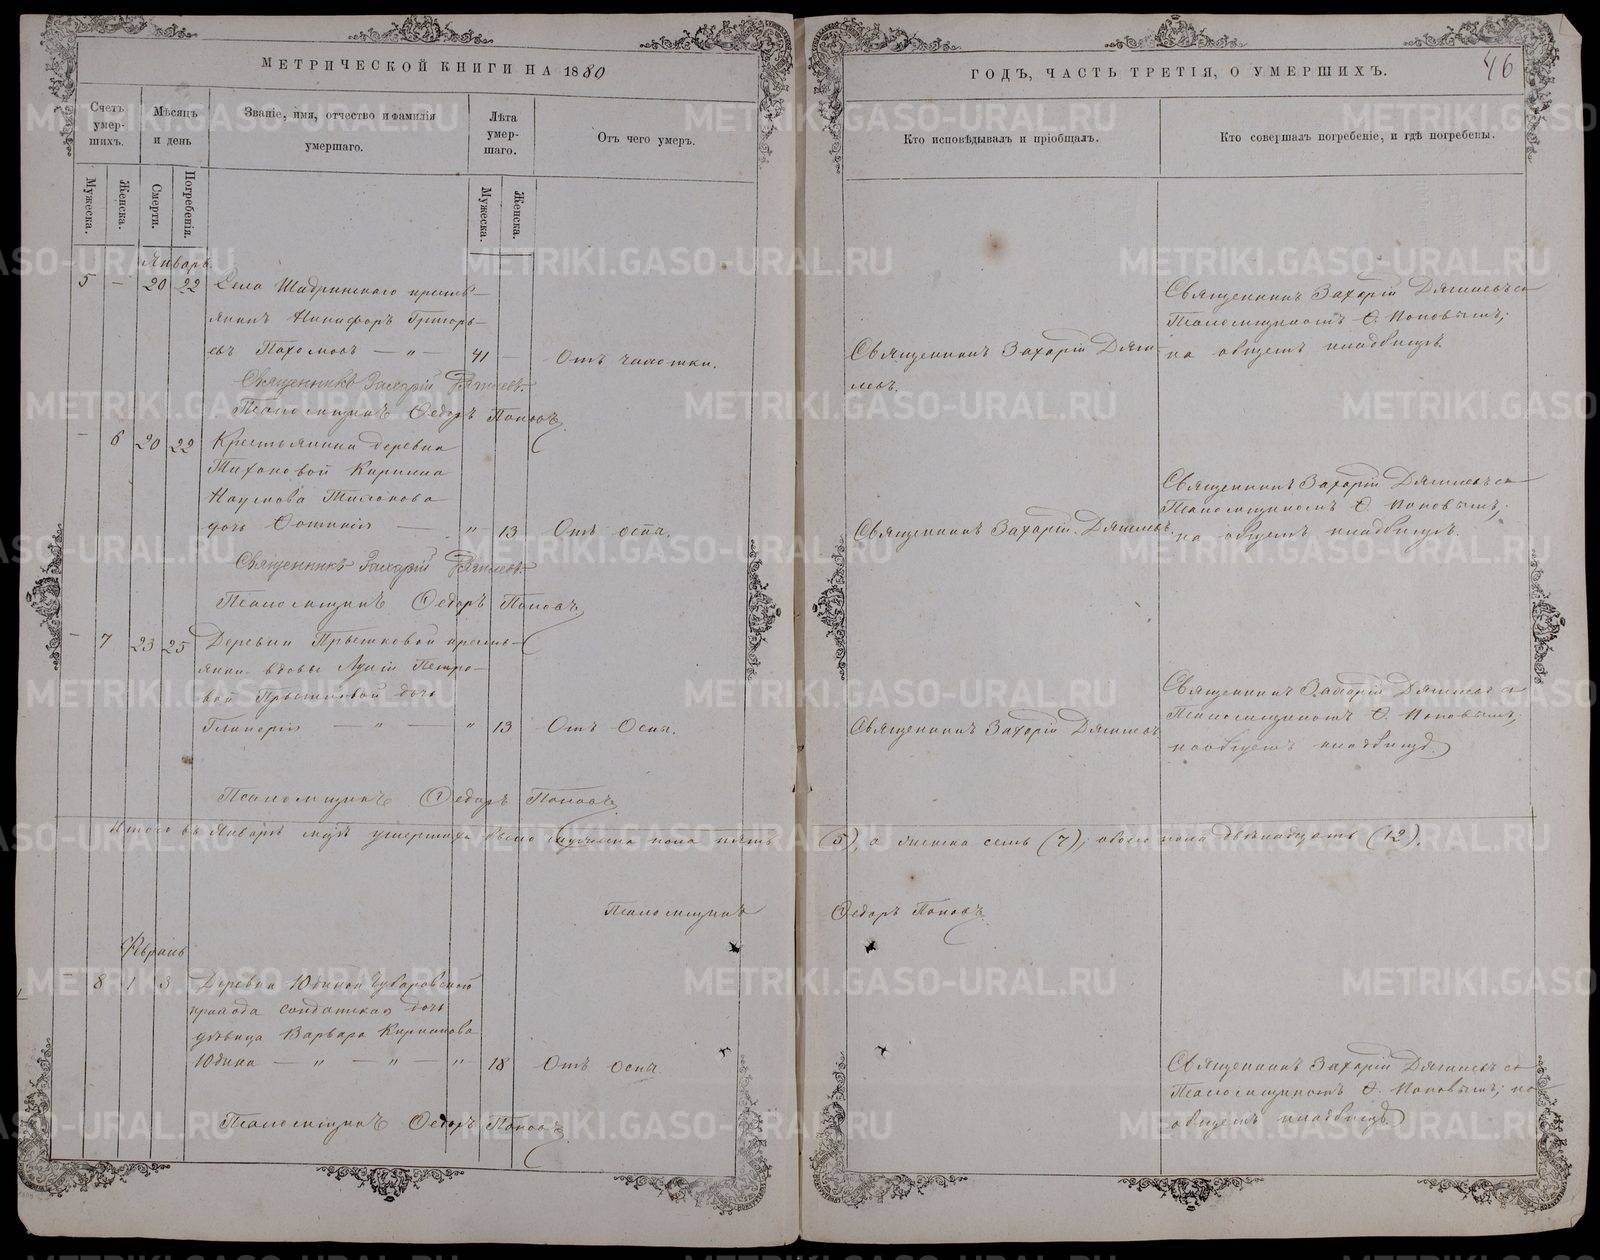 МЕТРИЧЕСКОЙ КНИГИ НА 1880
Счетъ умер-шихъ.
Мѣсяцъ и день
Званіе, имя, отчество и фамилія умершаго.
Лѣта умер-шаго.
Отъ чего умеръ.
Мужеска.
Женска.
Смерти.
Погребенія.
Мужеска.
Женска.
Январь
5 — 20 22 Села Шадринскаго кресть-
янинъ Никифоръ Григорь-
евъ Пахомовъ — „ — 41 — Отъ чахотки.
Священникъ Захарій Дягилевъ.
Псаломщикъ Ѳедоръ Поповъ
— 6 20 22 Крестьянина деревни
Тихоновой Кирилла
Наумова Тихонова
дочь Фотинія — „ 13 Отъ оспы.
Священникъ Захарій Дягилевъ.
Псаломщикъ Ѳедоръ Поповъ
— 7 23 25 Деревни Прытковой кресть-
янки вдовы Петро-
вой Прытковой дочь
Гликерія — „ — „ 13 Отъ Оспы.
Псаломщикъ Ѳедоръ Поповъ
Итого въ Январѣ м-цѣ умершихъ было мужеска пола пять
Псаломщикъ
Февраль
— 8 1 3 Деревни Юдиной
прихода солдатская дочь
дѣвица Варвара Кириллова
Юдина — „ — „ — „ 18 Отъ Оспы
Псаломщикъ Ѳедоръ Поповъ
ГОДЪ, ЧАСТЬ ТРЕТІЯ, О УМЕРШИХЪ.
46
Кто исповѣдывалъ и пріобщалъ.
Кто совершалъ погребеніе, и гдѣ погребены.
Священникъ Захарій Дягилевъ съ
Псаломщикомъ Ѳ. Поповымъ;
на общемъ кладбищѣ.
Священникъ Захарій Дяги-
левъ.
Священникъ Захарій Дягилевъ съ
Псаломщикомъ Ѳ. Поповымъ;
на общемъ кладбищѣ.
Священникъ Захарій Дягилевъ.
Священникъ Захарій Дягилевъ съ
Псаломщикомъ Ѳ. Поповымъ;
на общемъ кладбищѣ.
Священникъ Захарій Дягилевъ
(5), а женска семь (7); обоего пола двѣнадцать (12).
Ѳедоръ Поповъ
Священникъ Захарій Дягилевъ съ
Псаломщикомъ Ѳ. Поповымъ; на
общемъ кладбищѣ
METRIKI.GASO-URAL.RU